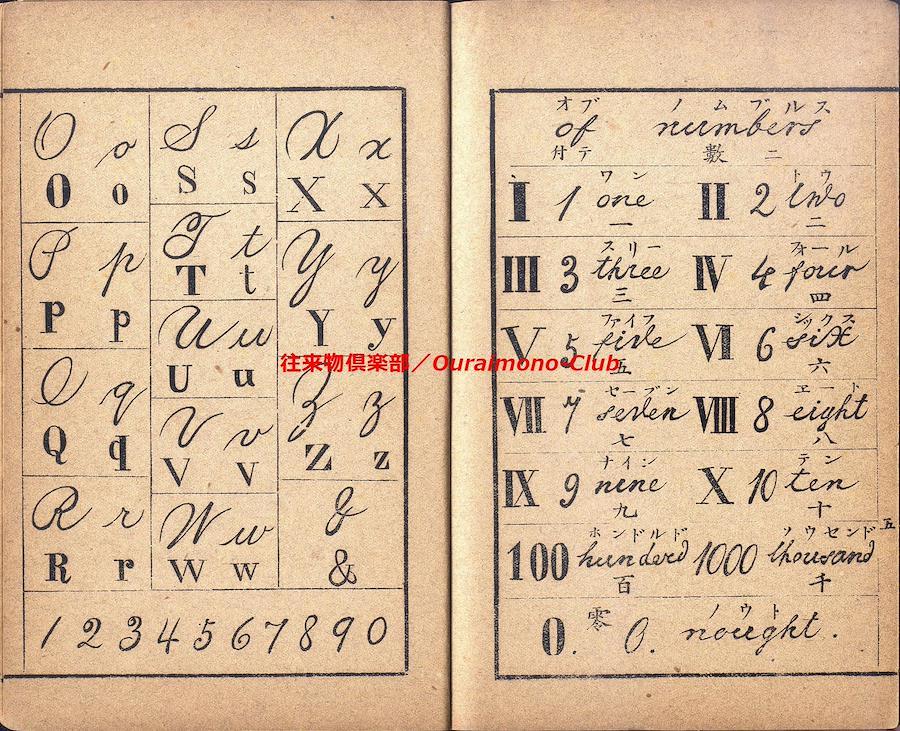 O o
O o
P p
P p
Q q
Q q
R r
R r
S s
S s
T t
T t
U u
U u
V v
V v
W w
W w
X x
X x
Y y
Y y
Z z
Z z
&
&
1 2 3 4 5 6 7 8 9 0
オブ ノムブルス
of numbers
付テ 數ニ
ワン トウ
I 1 one II 2 two
一 二
スリー フォール
III 3 three IV 4 four
三 四
ファイフ シックス
V 5 five VI 6 six
五 六
セーブン ヱート
VII 7 seven VIII 8 eight
七 八
ナイン テン
IX 9 nine X 10 ten
九 十
ホンドルド ソウセンド
100 hunderd 1000 thousand
百 千
五
零 ノウト
0. 0. nought.
往来物倶楽部／Ouraimono-Club